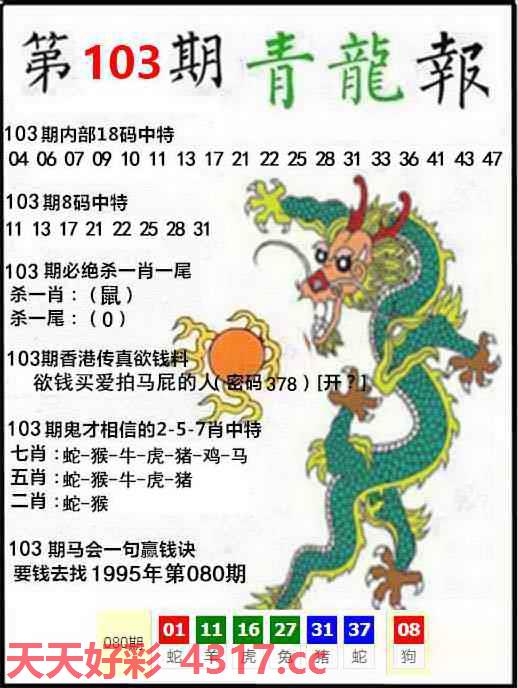 第103期青龍報
103期内部18码中特
04 06 07 09 10 11 13 17 21 22 25 28 31 33 36 41 43 47
103期8码中特
11 13 17 21 22 25 28 31
103期必绝杀一肖一尾
杀一肖：（鼠）
杀一尾：（0）
103期香港传真欲钱料
欲钱买爱拍马屁的人(密码378)[开？]
103期鬼才相信的2-5-7肖中特
七肖：蛇-猴-牛-虎-猪-鸡-马
五肖：蛇-猴-牛-虎-猪
二肖：蛇-猴
103期马会一句赢钱诀
要钱去找1995年第080期
080期 01 11 16 27 31 37 08
蛇 羊 虎 兔 猪 蛇 狗
天天好彩 4317.cc